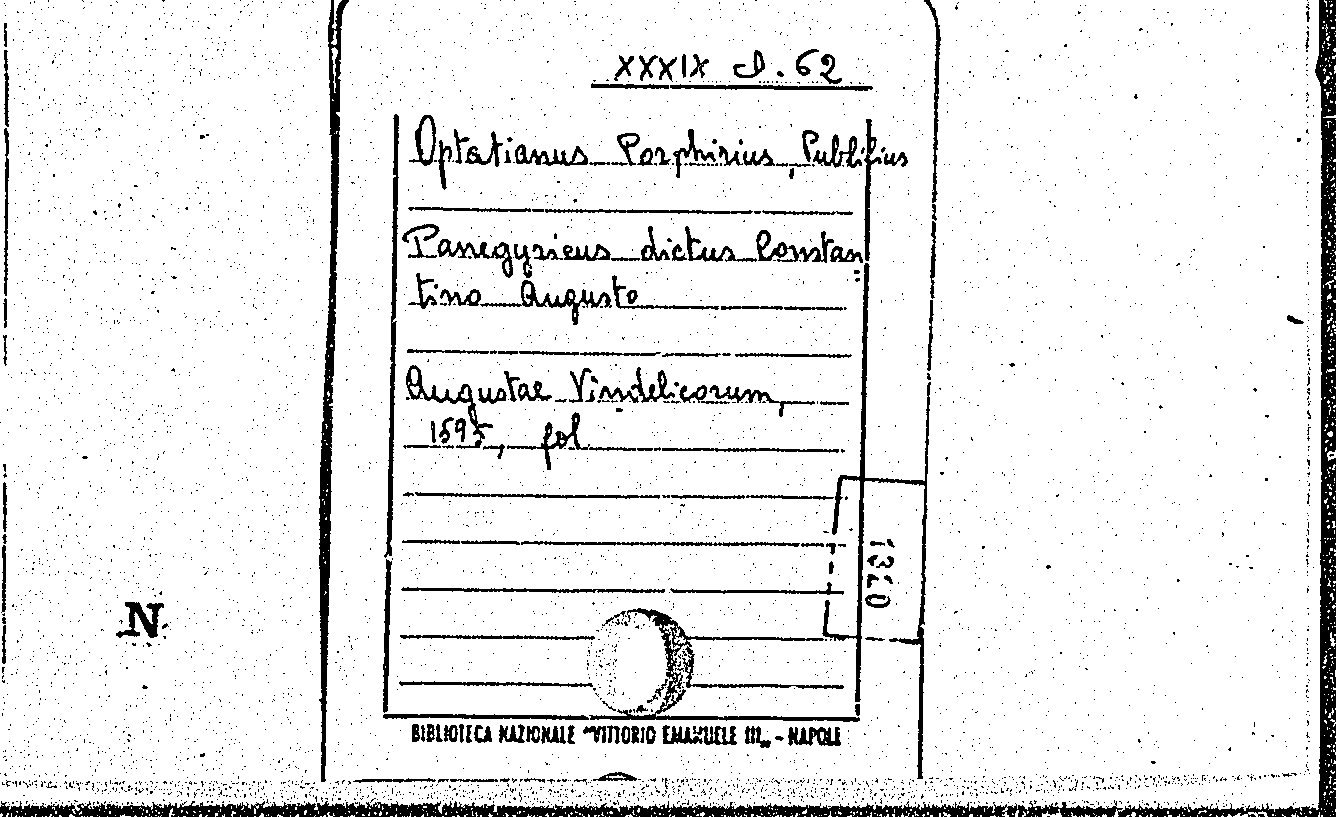 XXXIX D. 62
Optatianus Porphirius, Publifius
Panegyricus dictus Constan
tino Augusto
Augustae Vindelicorum,
1595, fol
1320
N
BIBLIOTECA NAZIONALE "VITTORIO EMANUELE III„ - NAPOLI